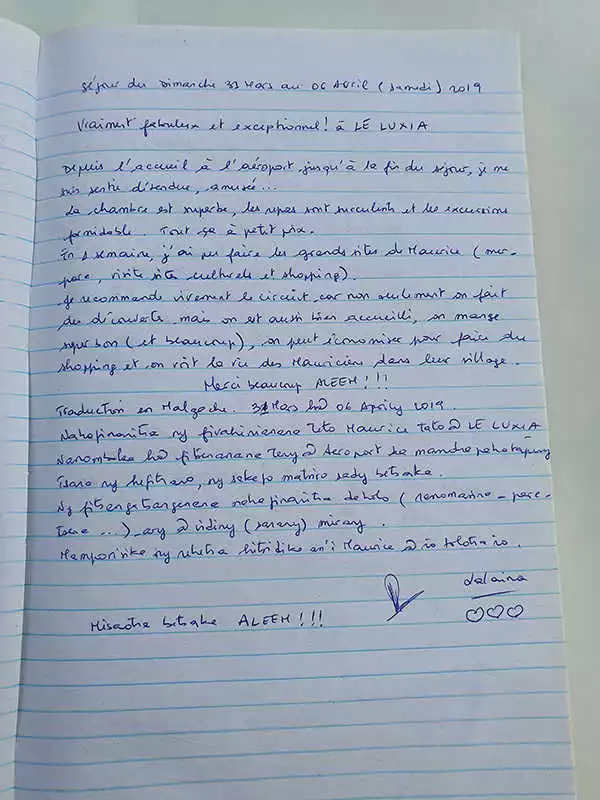 Séjour du Dimanche 31 Mars au 06 Avril (samedi) 2019
Vraiment fabuleux et exceptionnel! à LE LUXIA
Depuis l'accueil à l'aéroport jusqu'à la fin du séjour, je me
suis sentie détendue, amusée...
La chambre est superbe, les repas sont succulents et les excursions
formidable. Tout ça à petit prix.
En 1 semaine, j'ai pu faire les grands sites de Maurice (mer-
parc, visite site culturels et shopping).
Je recommande vivement le circuit car non seulement on fait
des découverte mais on est aussi bien accueilli, on mange
super bon (et beaucoup), on peut économiser pour faire du
shopping et on voit la vie des Mauriciens dans leur village.
Merci beaucoup ALEEM!!!
Traduction en Malgache. 31 Mars ka 06 Aprily 2019.
Nahafinaritra ny fivahinianana teto Maurice tato @ LE LUXIA
Nanomboka ka fitsenana teny @ Aeroport ka
Tsara ny hafitrano, ny sakafo matsiro sady betsaka.
Ny fitsangatsanganana nahafinaritra daholo (ranomasina - parc-
tsena ...) ary @ vidiny (sarany) mirary.
Mamporisika ny rehetra hitsidika an'i Maurice @ io
dalaina
Misaotra betsaka ALEEM!!!